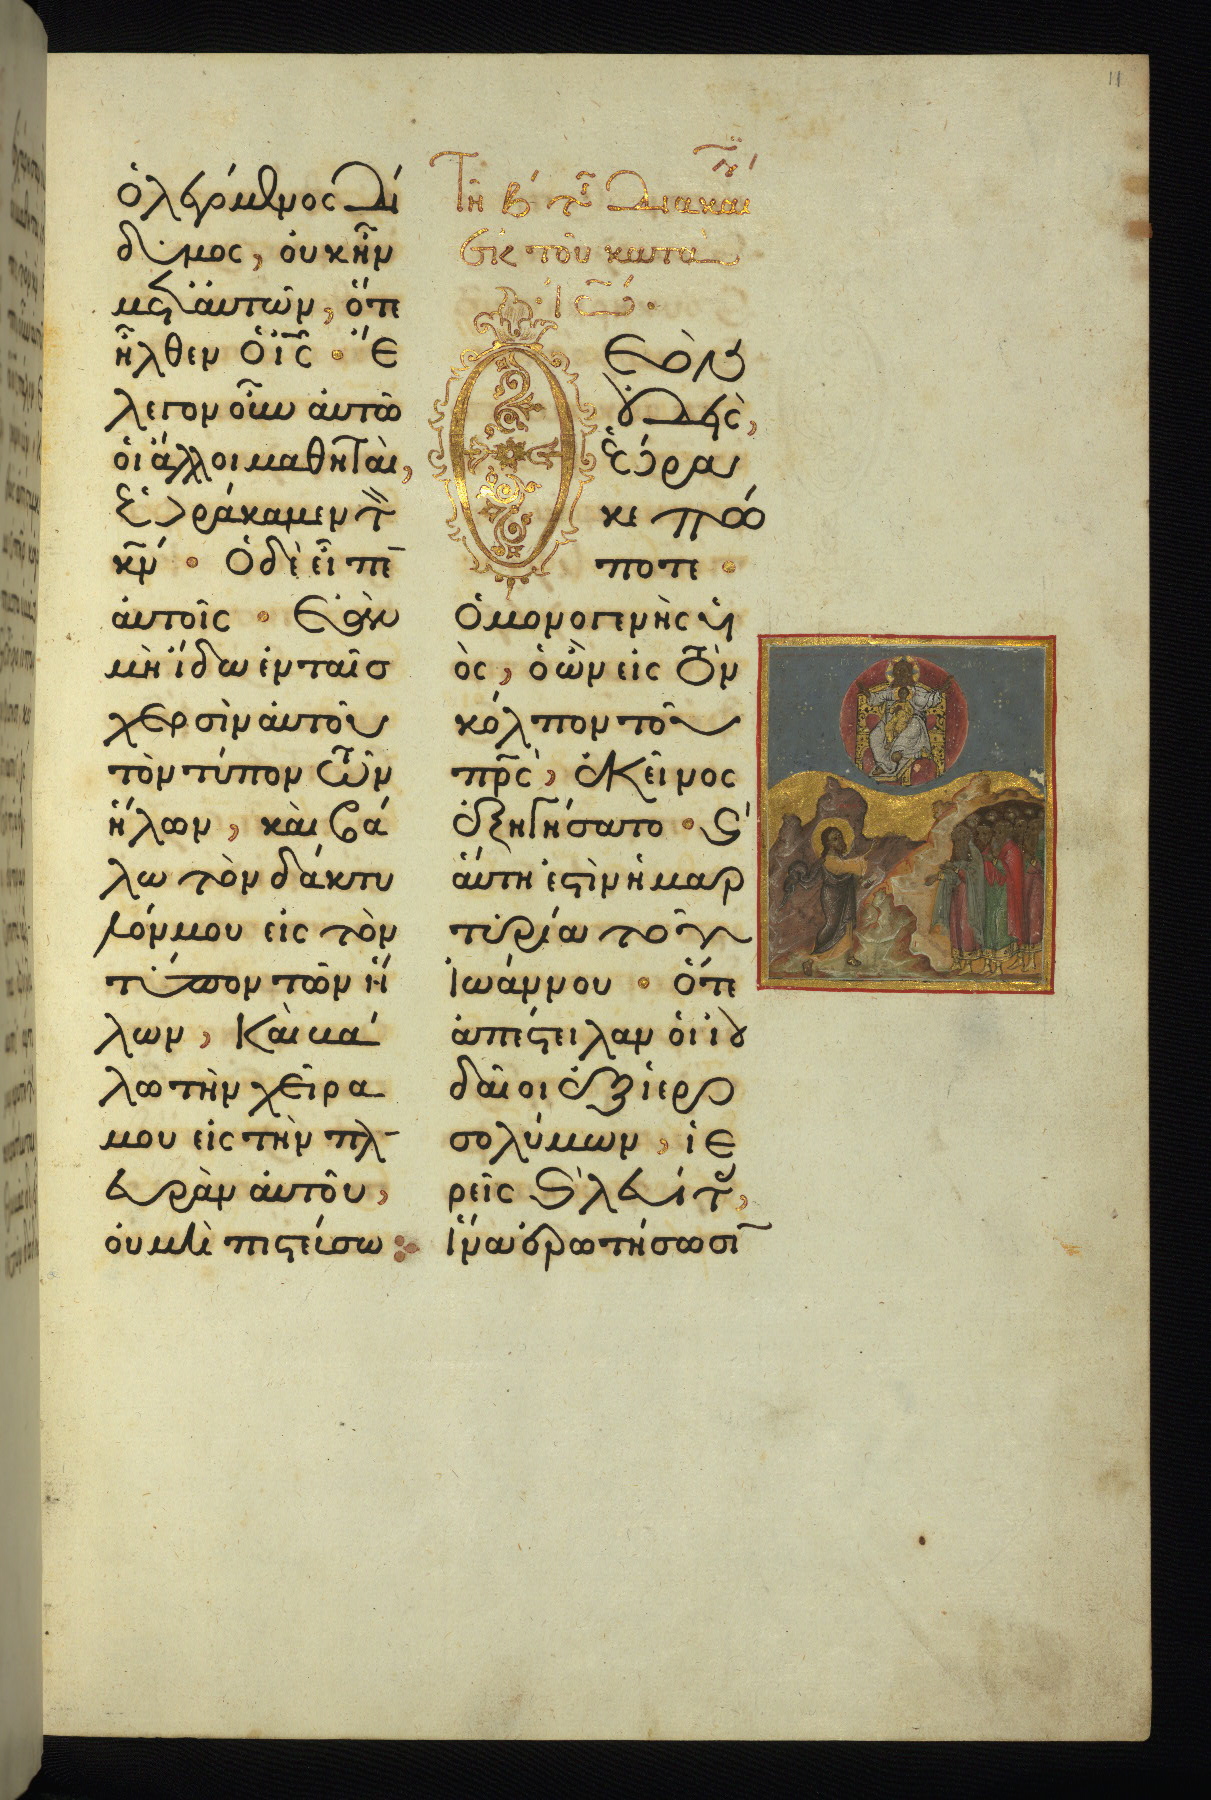 11
ὁ λεγόμενος Δί
δυμος, ουκ ἦν
μετ' ἀυτῶν, ὅτε
ἦλθεν ὁ ἰς · Ἔ
λεγον οὖν ἀυτῶ
ὁι ἄλλοι μαθηταὶ,
Ἑωράκαμεν τ̀
κν̄ · Ὁ δὲ εἶπε
ἀυτοῖς · Ἐὰν
μὴ ἴδω ἐν ταῖσ
χερσὶν ἀυτοῦ
τὸν τύπον τῶν
ἥλων, καὶ βά
λω τὸν δάκτυ
λόν μου εἰς τὸν
τύπον τῶν ἥ
λων, Καὶ βά
λω τὴν χεῖρα
μου εἰς τὴν πλ
ευρὰν ἀυτοῦ,
ὀυ μὴ πιστεύσω
Τῆ β' τῆ διακαι
ἐκ τοῦ κατὰ
Ἰω ·
Θεὸν
ουδεὶς,
Ἑώρα
κε πώ
ποτε ·
Ὁ μονογενὴς υἱ
ὸς, ὁ ὢν εἰς τὸν
κόλπον τοῦ
πρς, ἐκεῖνος
ἐξηγήσατο · Καὶ
ἅυτη ἐστὶν ἡ μαρ
τυρία τοῦ
Ἰωάννου · Ὅτε
ἀπέστειλαν ὁι ἰου
δαῖοι ἐξ ἱερο
σολύμων, ἱε
ρεῖς καὶ λευίτας,
ἵνα ἐρωτήσωσι